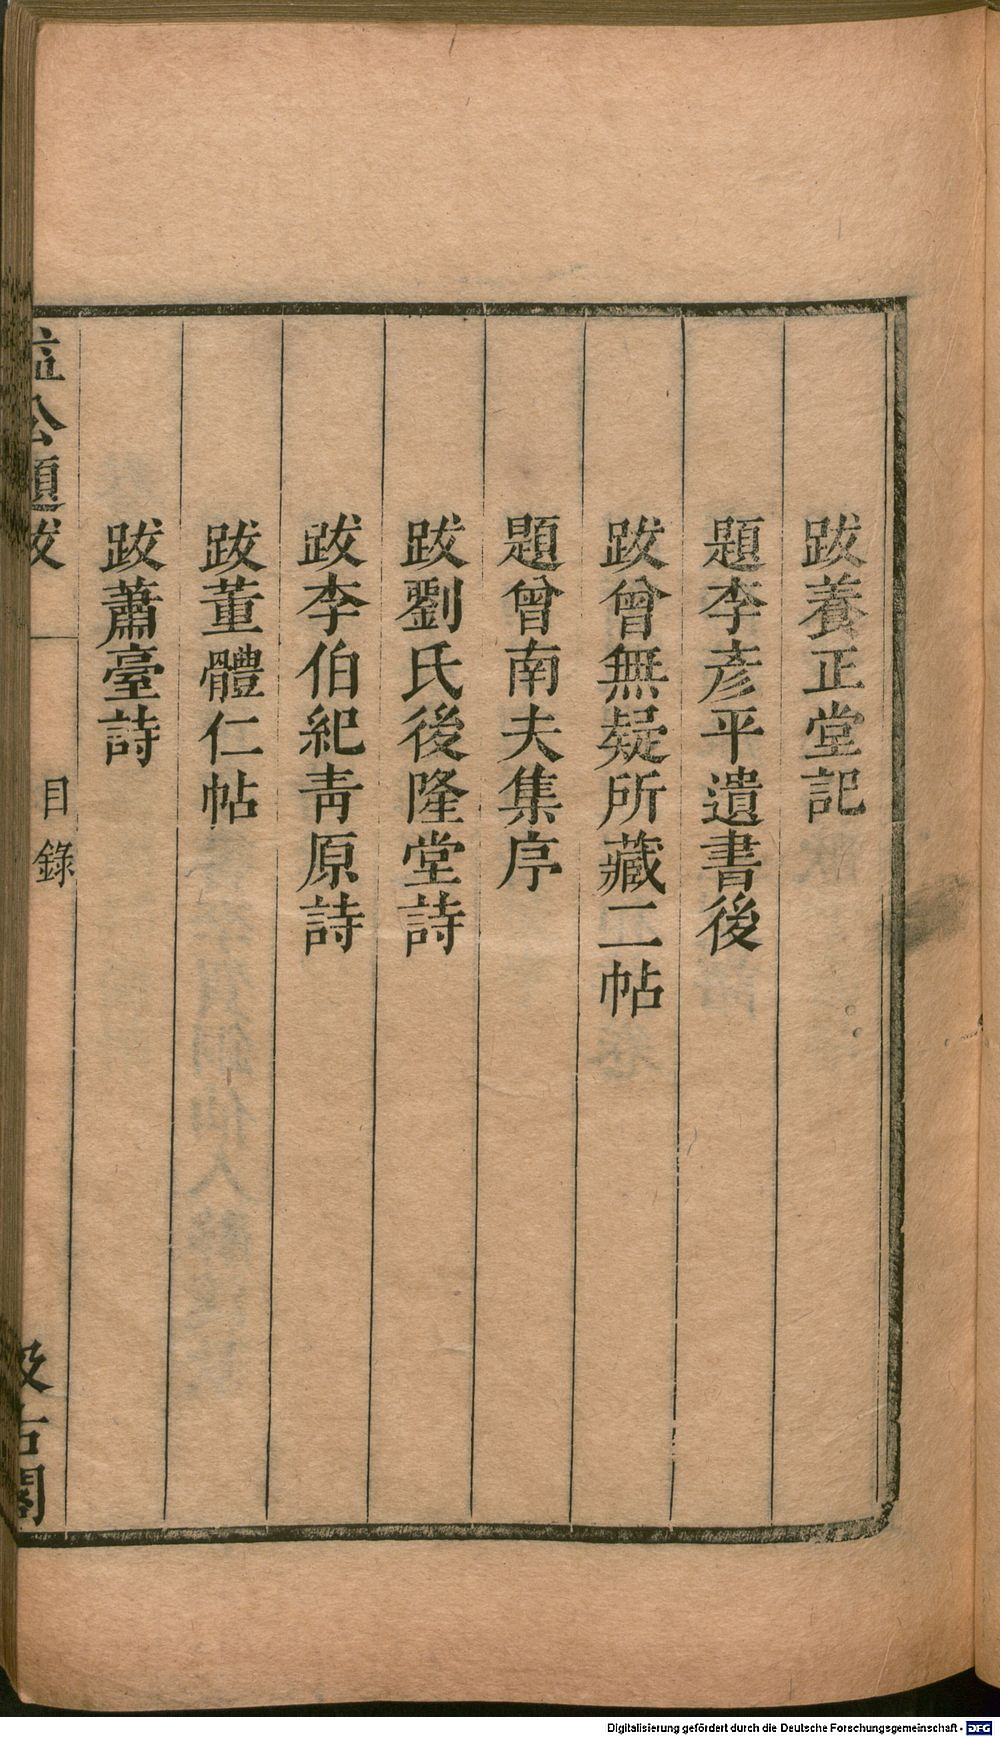 跋養正堂記
題李彥平遺書後
跋曾無疑所藏二帖
題曾南夫集序
跋劉氏後隆堂詩
跋李伯紀青原詩
跋董體仁帖
跋蕭臺詩
益公題跋
目錄
汲古閣
Digitalisierung gefördert durch die Deutsche Forschungsgemeinschaft - DFG